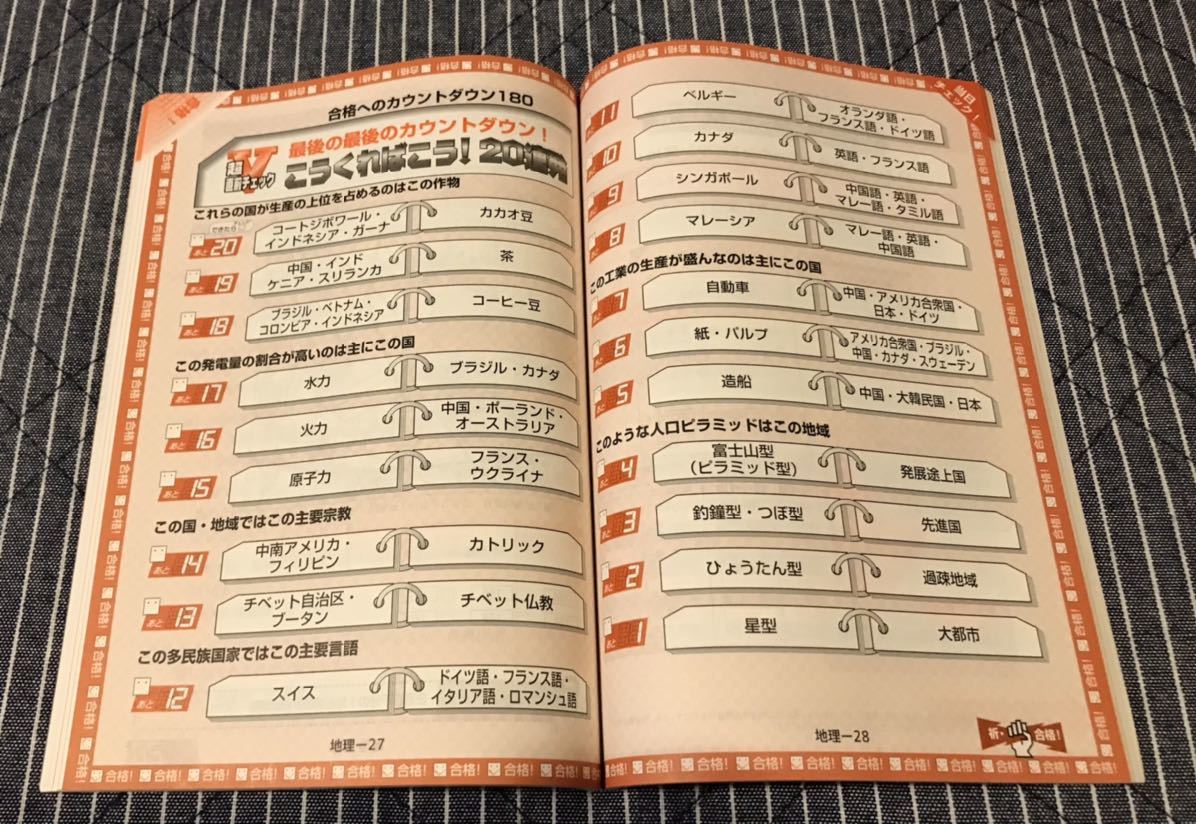 合格へのカウントダウン180
最後の最後のカウントダウン！
V
直前チェック
こうくればこう！20連発
これらの国が生産の上位を占めるのはこの作物
できたら
あと20
コートジボワール・
インドネシア・ガーナ
カカオ豆
あと19
中国・インド
ケニア・スリランカ
茶
あと18
ブラジル・ベトナム・
コロンビア・インドネシア
コーヒー豆
この発電量の割合が高いのは主にこの国
あと17
水力
ブラジル・カナダ
あと16
火力
中国・ポーランド・
オーストラリア
あと15
原子力
フランス・
ウクライナ
この国・地域ではこの主要宗教
あと14
中南アメリカ・
フィリピン
カトリック
あと13
チベット自治区・
ブータン
チベット仏教
この多民族国家ではこの主要言語
あと12
スイス
ドイツ語・フランス語・
イタリア語・ロマンシュ語
地理ー27
当日
チェック！
あと11
ベルギー
オランダ語・
フランス語・ドイツ語
あと10
カナダ
英語・フランス語
あと9
シンガポール
中国語・英語・
マレー語・タミル語
あと8
マレーシア
マレー語・英語・
中国語
この工業の生産が盛んなのは主にこの国
あと7
自動車
中国・アメリカ合衆国・
日本・ドイツ
あと6
紙・パルプ
アメリカ合衆国・ブラジル・
中国・カナダ・スウェーデン
あと5
造船
中国・大韓民国・日本
このような人口ピラミッドはこの地域
あと4
富士山型
（ピラミッド型）
発展途上国
あと3
釣鐘型・つぼ型
先進国
あと2
ひょうたん型
過疎地域
あと1
星型
大都市
地理ー28
祈・合格！
合格！ 合格！ 合格！ 合格！ 合格！ 合格！ 合格！ 合格！